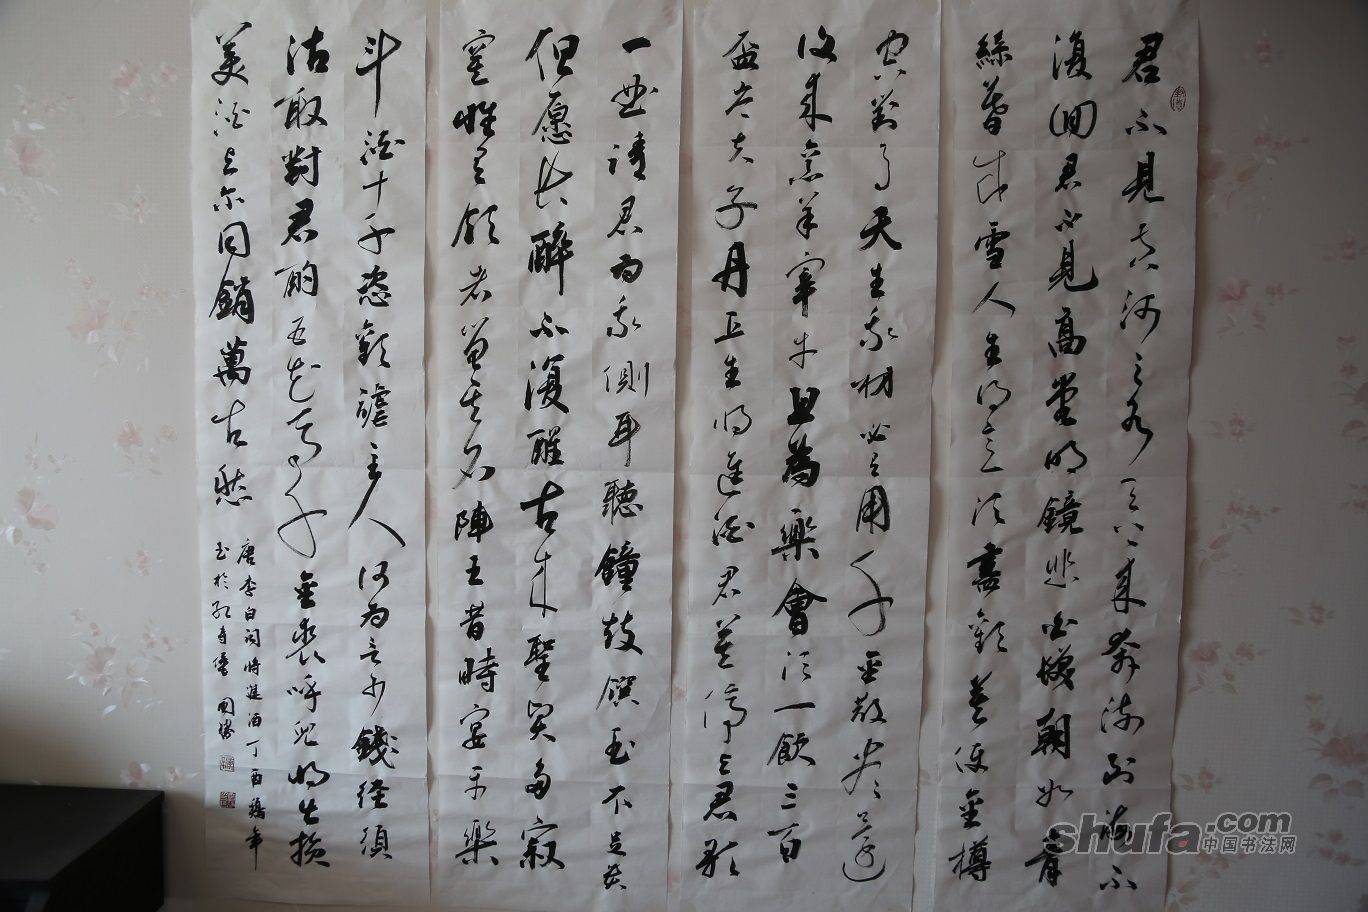 君不見黃河之水天上來奔流到海不
復回君不見高堂明鏡悲白髮朝如青
絲暮成雪人生得意須盡歡莫使金樽
空對月天生我材必有用千金散盡還
復來烹羊宰牛且為樂會須一飲三百
盃岑夫子丹丘生將進酒君莫停與君歌
一曲請君為我側耳聽鐘鼓饌玉不足貴
但愿長醉不復醒古來聖賢多寂
寞惟有飲者留其名陳王昔時宴平樂
斗酒十千恣歡謔主人何為言少錢徑須
沽取對君酌五花馬千金裘呼兒將出換
美酒與爾同銷萬古愁
唐李白詞將進酒丁酉鷄年
於 國勝
shufa.com
中国书法网